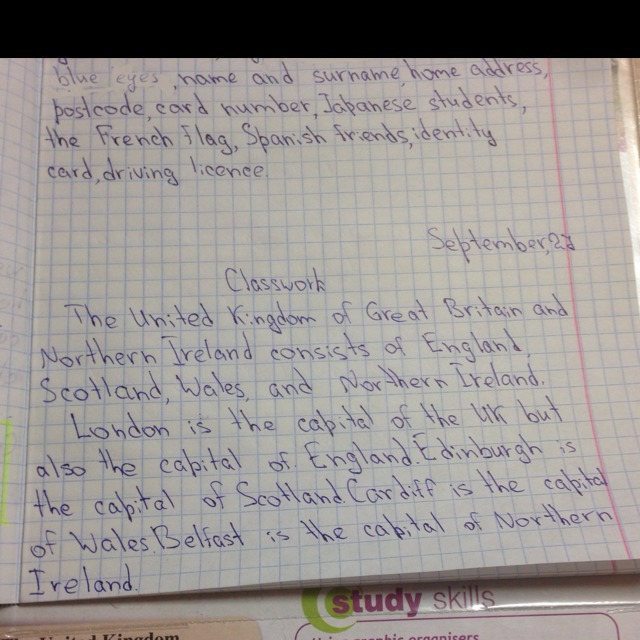 blue eyes, name and surname, home address,
postcode, card number, Japanese students,
the French Flag, Spanish friends, identity
card, driving licence.
September, 23
Classwork
The United Kingdom of Great Britain and
Northern Ireland consists of England,
Scotland, Wales, and Northern Ireland.
London is the capital of the UK but
also the capital of England. Edinburgh is
the capital of Scotland. Cardiff is the capital
of Wales. Belfast is the capital of Northern
Ireland.
study skills
United Kingdom
Using graphic organisers